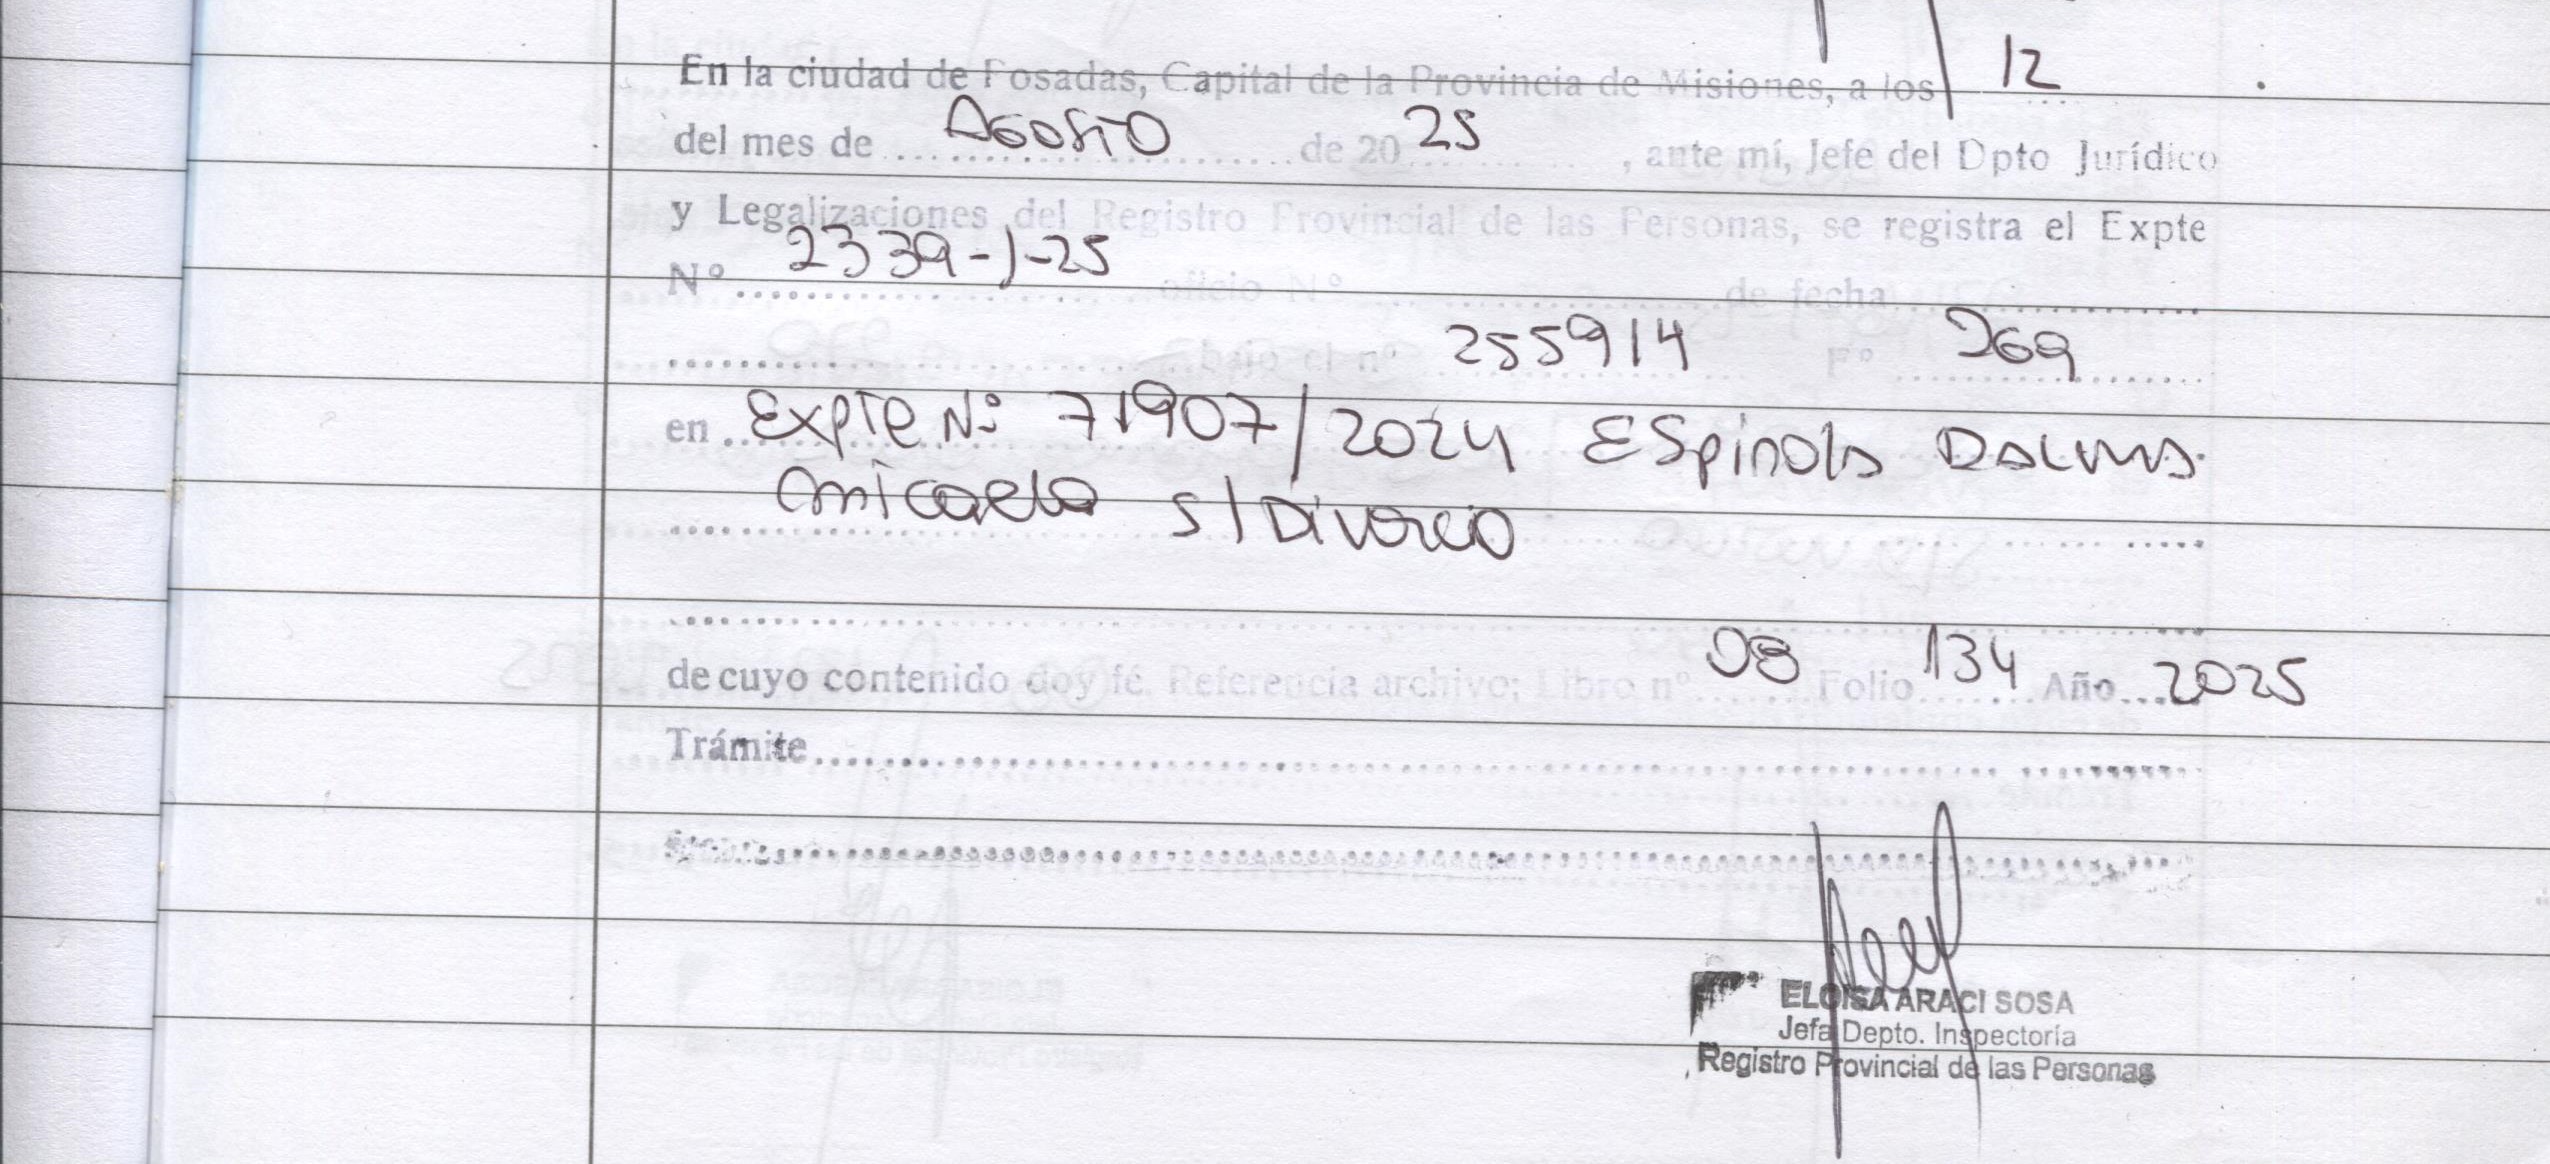 En la ciudad de Posadas, Capital de la Provincia de Misiones, a los 12
del mes de Agosto de 20 25, ante mí, Jefe del Dpto Jurídico
y Legalizaciones del Registro Provincial de las Personas, se registra el Expte
Nº 2339-J-25 oficio Nº de fecha
bajo el nº 255914 Fº 269
en Expte Nº 71907/2024 Espinola
Micaela s/Divorcio
de cuyo contenido doy fé. Referencia archivo; Libro nº 08 Folio 134 Año 2025
Trámite
ELOISA ARACI SOSA
Jefa Depto. Inspectoría
Registro Provincial de las Personas